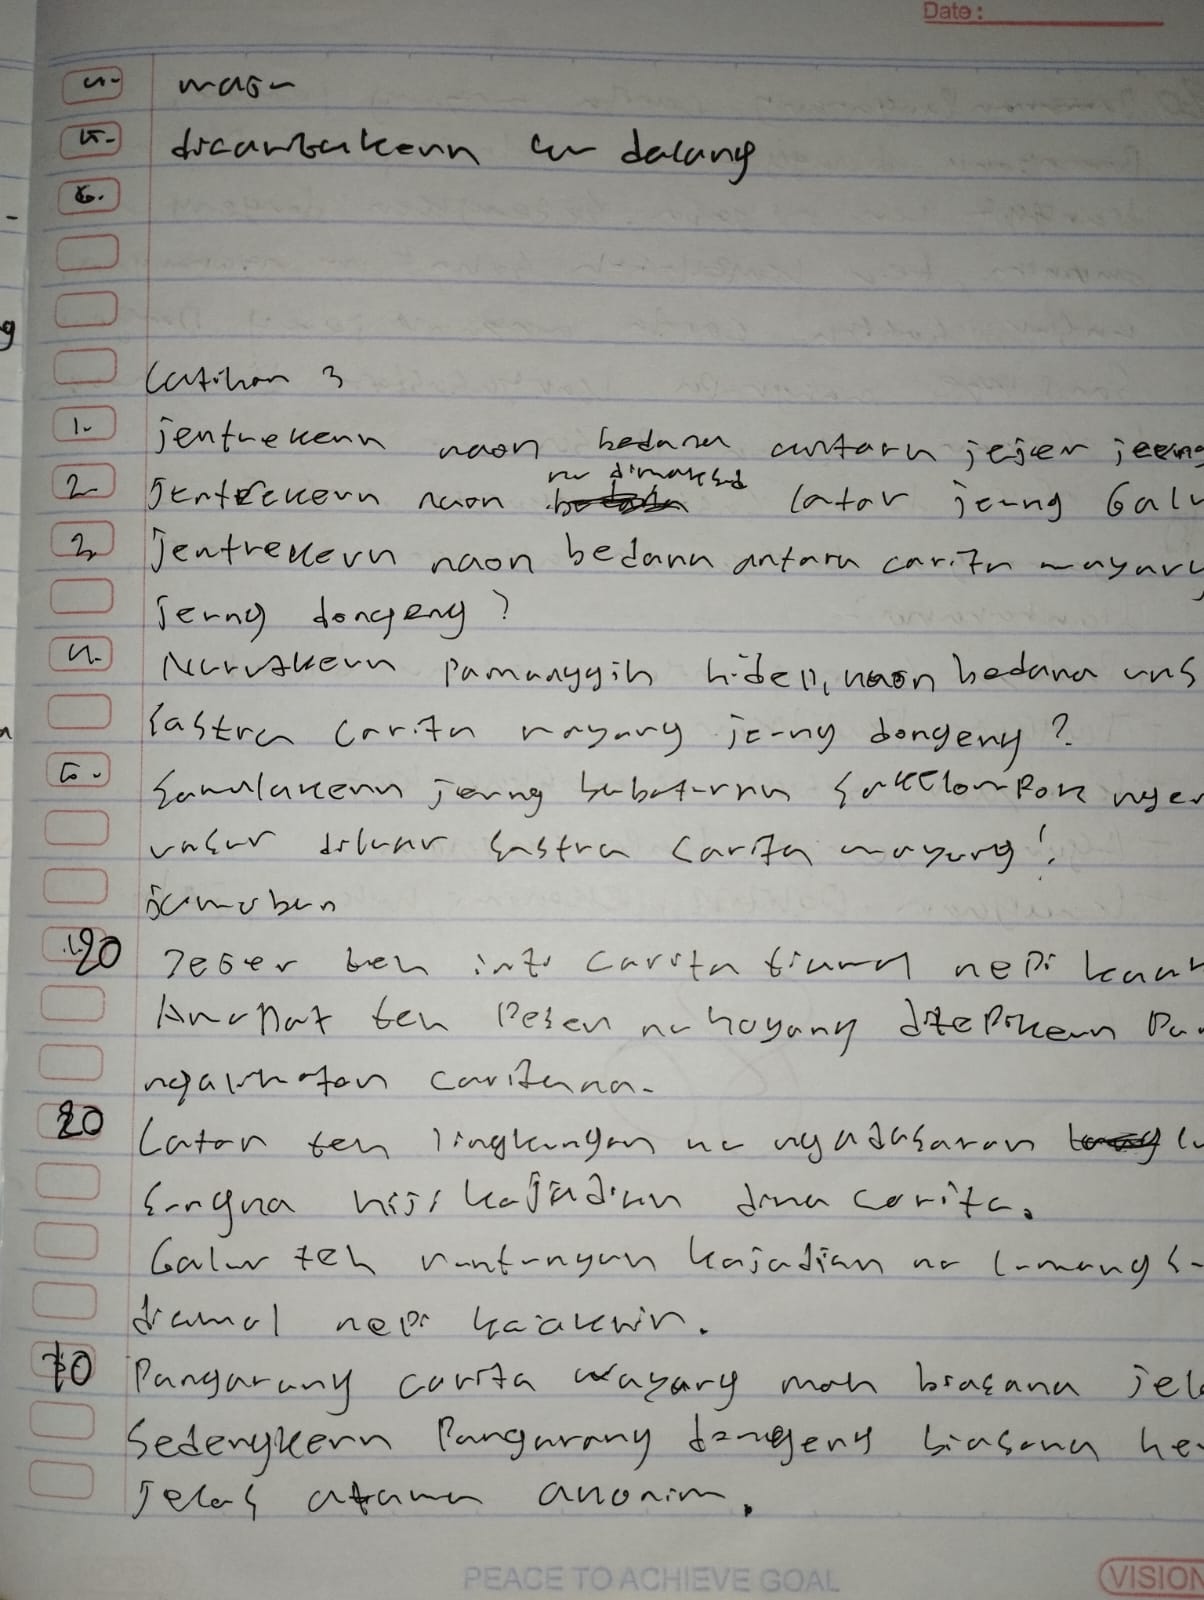 Date:
4. naon
5. dicaritakeun ku dalang
6.
Latihan 3
1. jentrekeun naon bedana antara jejer jeung
nu dimaksud
2. jentrekeun naon latar jeung Galu
3. jentrekeun naon bedana antara carita wayang
jeung dongeng?
4. Nurutkeun pamanggih hidep, naon bedana uns
sastra carita wayang jeung dongeng?
5. jeung babaturan sakelompok nger
unsur diluar sastra carita wayang!
jawaban
20 Jejer teh inti carita timimiti nepi kaah
Amanat teh pesen nu hoyang ditepikeun pa
ngalwhatan caritana.
20 Latar teh lingkungan nu ngadasaran lu
sungna hiji kajadian dina carita.
Galur teh runtuyan kajadian nu lumangs
timimiti nepi kaakhir.
10 Pangarang carita wayang mah biasana jel
Sedengkeun Pangarang dongeng biasana he
jelas atawa anonim.
PEACE TO ACHIEVE GOAL
VISION